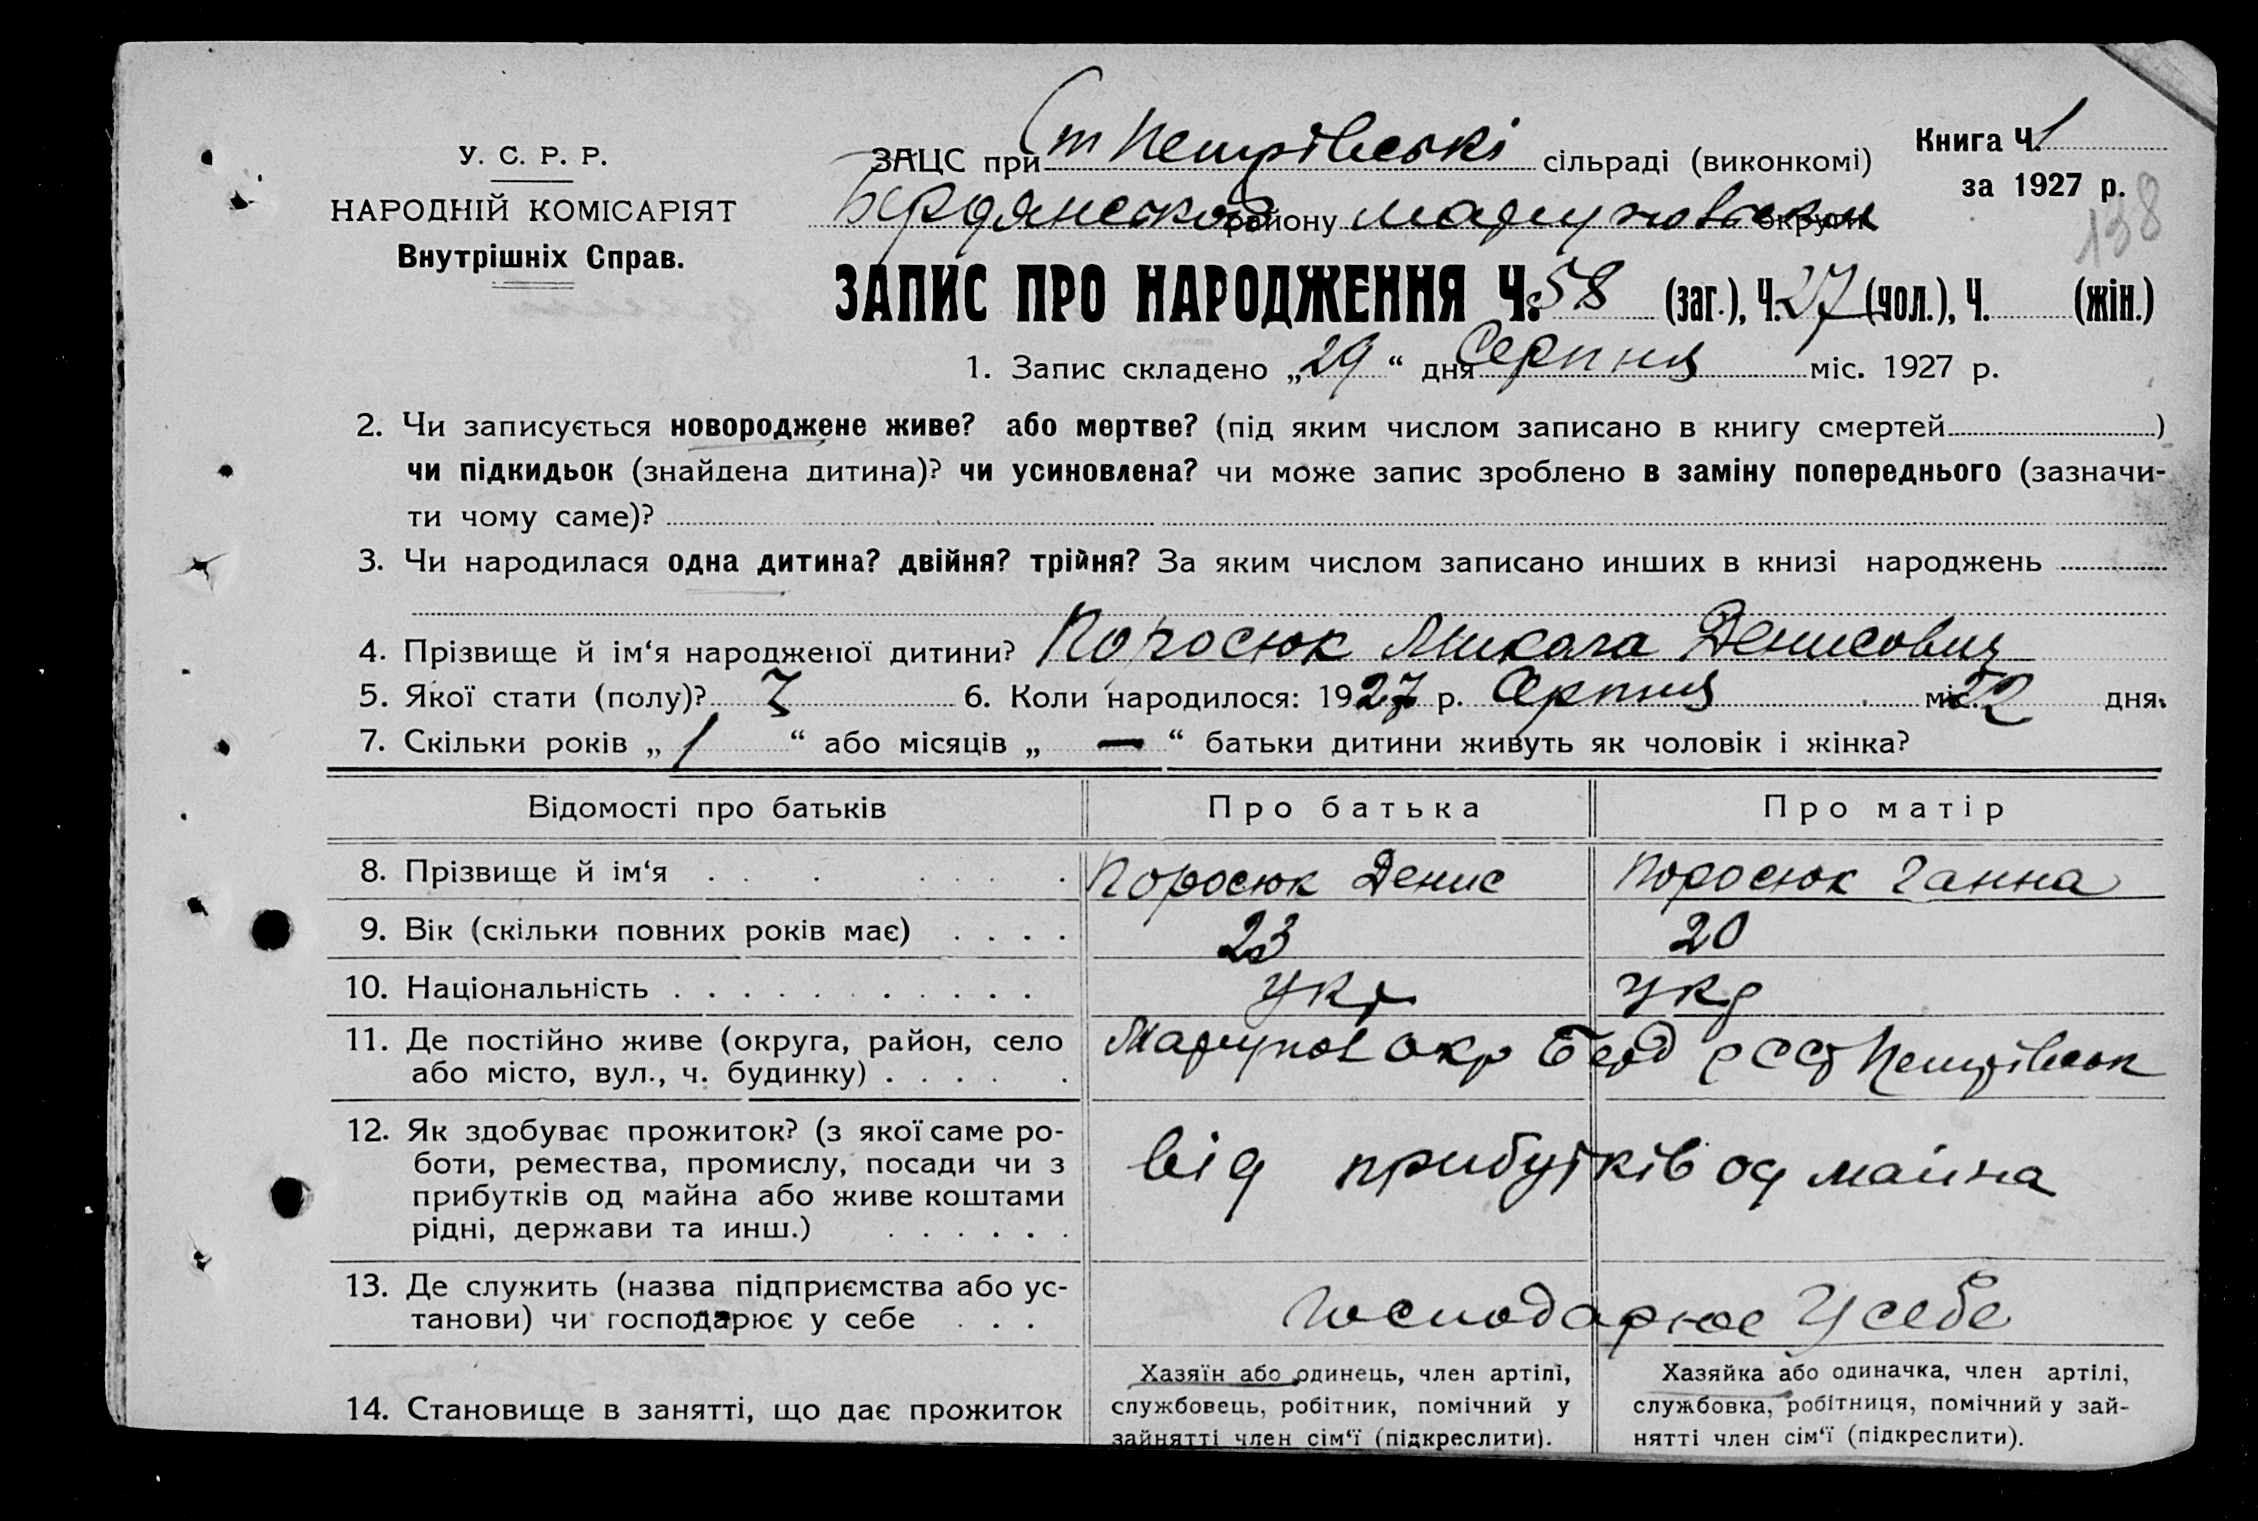 У. С. Р. Р.
НАРОДНІЙ КОМІСАРІЯТ
Внутрішніх Справ.
ЗАЦС при Ст Петрівські сільраді (виконкомі)
Книга Ч. 1
за 1927 р.
Бердянського району Маріупольськ округи
138
ЗАПИС ПРО НАРОДЖЕННЯ Ч. 58 (заг.), Ч. 27 (чол.), Ч. (жін.)
1. Запис складено „29“ дня Серпня міс. 1927 р.
2. Чи записується новороджене живе? або мертве? (під яким числом записано в книгу смертей )
чи підкидьок (знайдена дитина)? чи усиновлена? чи може запис зроблено в заміну попереднього (зазначи-
ти чому саме)?
3. Чи народилася одна дитина? двійня? трійня? За яким числом записано инших в книзі народжень
4. Прізвище й ім‘я народженої дитини? Поросюк Микола Денисович
5. Якої стати (полу)? Ч 6. Коли народилося: 1927 р. Серпня міс. 22 дня.
7. Скільки років „ 1 “ або місяців „ — “ батьки дитини живуть як чоловік і жінка?
Відомості про батьків Про батька Про матір
8. Прізвище й ім‘я Поросюк Денис Поросюк Ганна
9. Вік (скільки повних років має) 23 20
10. Національність укр укр
11. Де постійно живе (округа, район, село
або місто, вул., ч. будинку) Маріупол окр Берд р Ст Петрівськ
12. Як здобуває прожиток? (з якої саме ро-
боти, ремества, промислу, посади чи з
прибутків од майна або живе коштами
рідні, держави та инш.)
від прибутків од майна
13. Де служить (назва підприємства або ус-
танови) чи господарює у себе
господарює У себе
14. Становище в занятті, що дає прожиток
Хазяїн або одинець, член артілі,
службовець, робітник, помічний у
зайнятті член сім‘ї (підкреслити).
Хазяйка або одиначка, член артілі,
службовка, робітниця, помічний у зай-
нятті член сім‘ї (підкреслити).